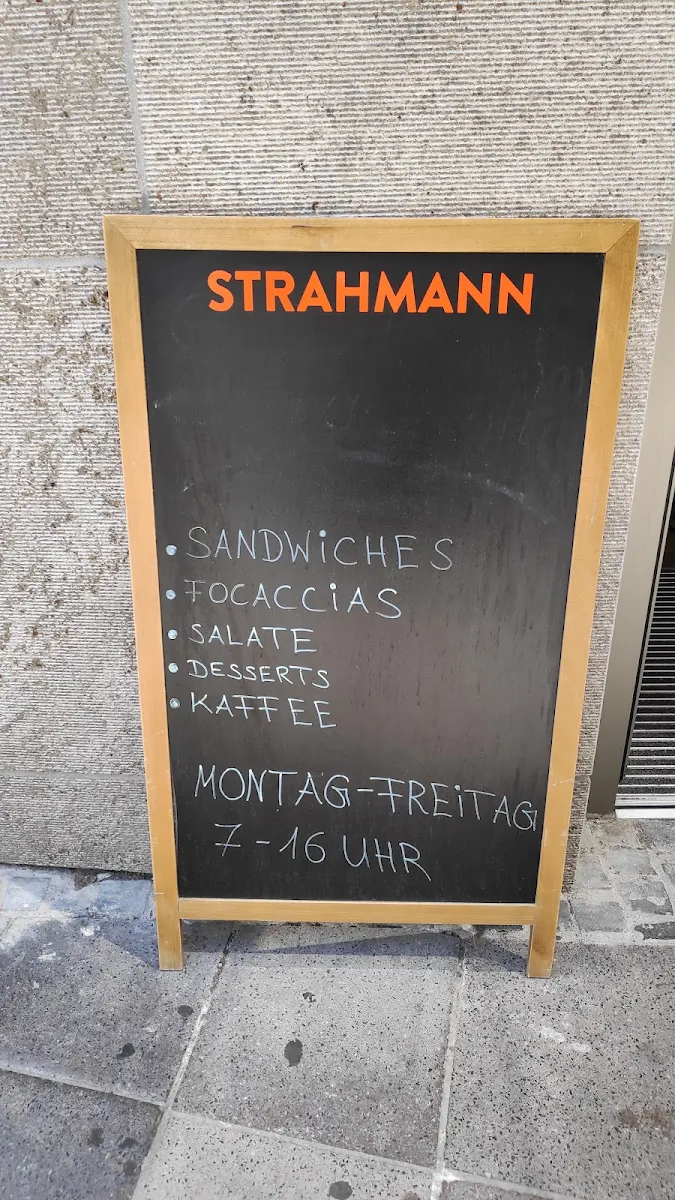 STRAHMANN
• SANDWiCHES
• FOCACCiAS
• SALATE
• DESSERTS
• KAFFEE
MONTAG-FREiTAG
7-16 UHR